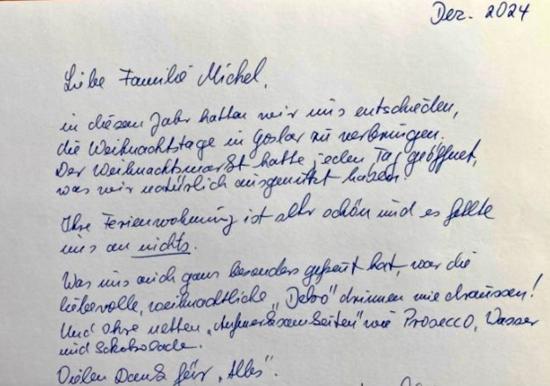 Dez. 2024
Liebe Familie Michel,
in diesem Jahr hatten wir uns entschieden,
die Weihnachtstage in Goslar zu verbringen.
Der Weihnachtsmarkt hatte jeden Tag geöffnet,
was wir natürlich ausgenützt haben!
Ihre Ferienwohnung ist sehr schön und es fehlte
uns an nichts.
Was uns auch ganz besonders gefreut hat, war die
liebevolle, weihnachtliche „Deko“ drinnen wie draussen!
Und Ihre netten „Aufmerksamkeiten“ wie Prosecco, Wasser
und Schokolade.
Vielen Dank für „Alles“.